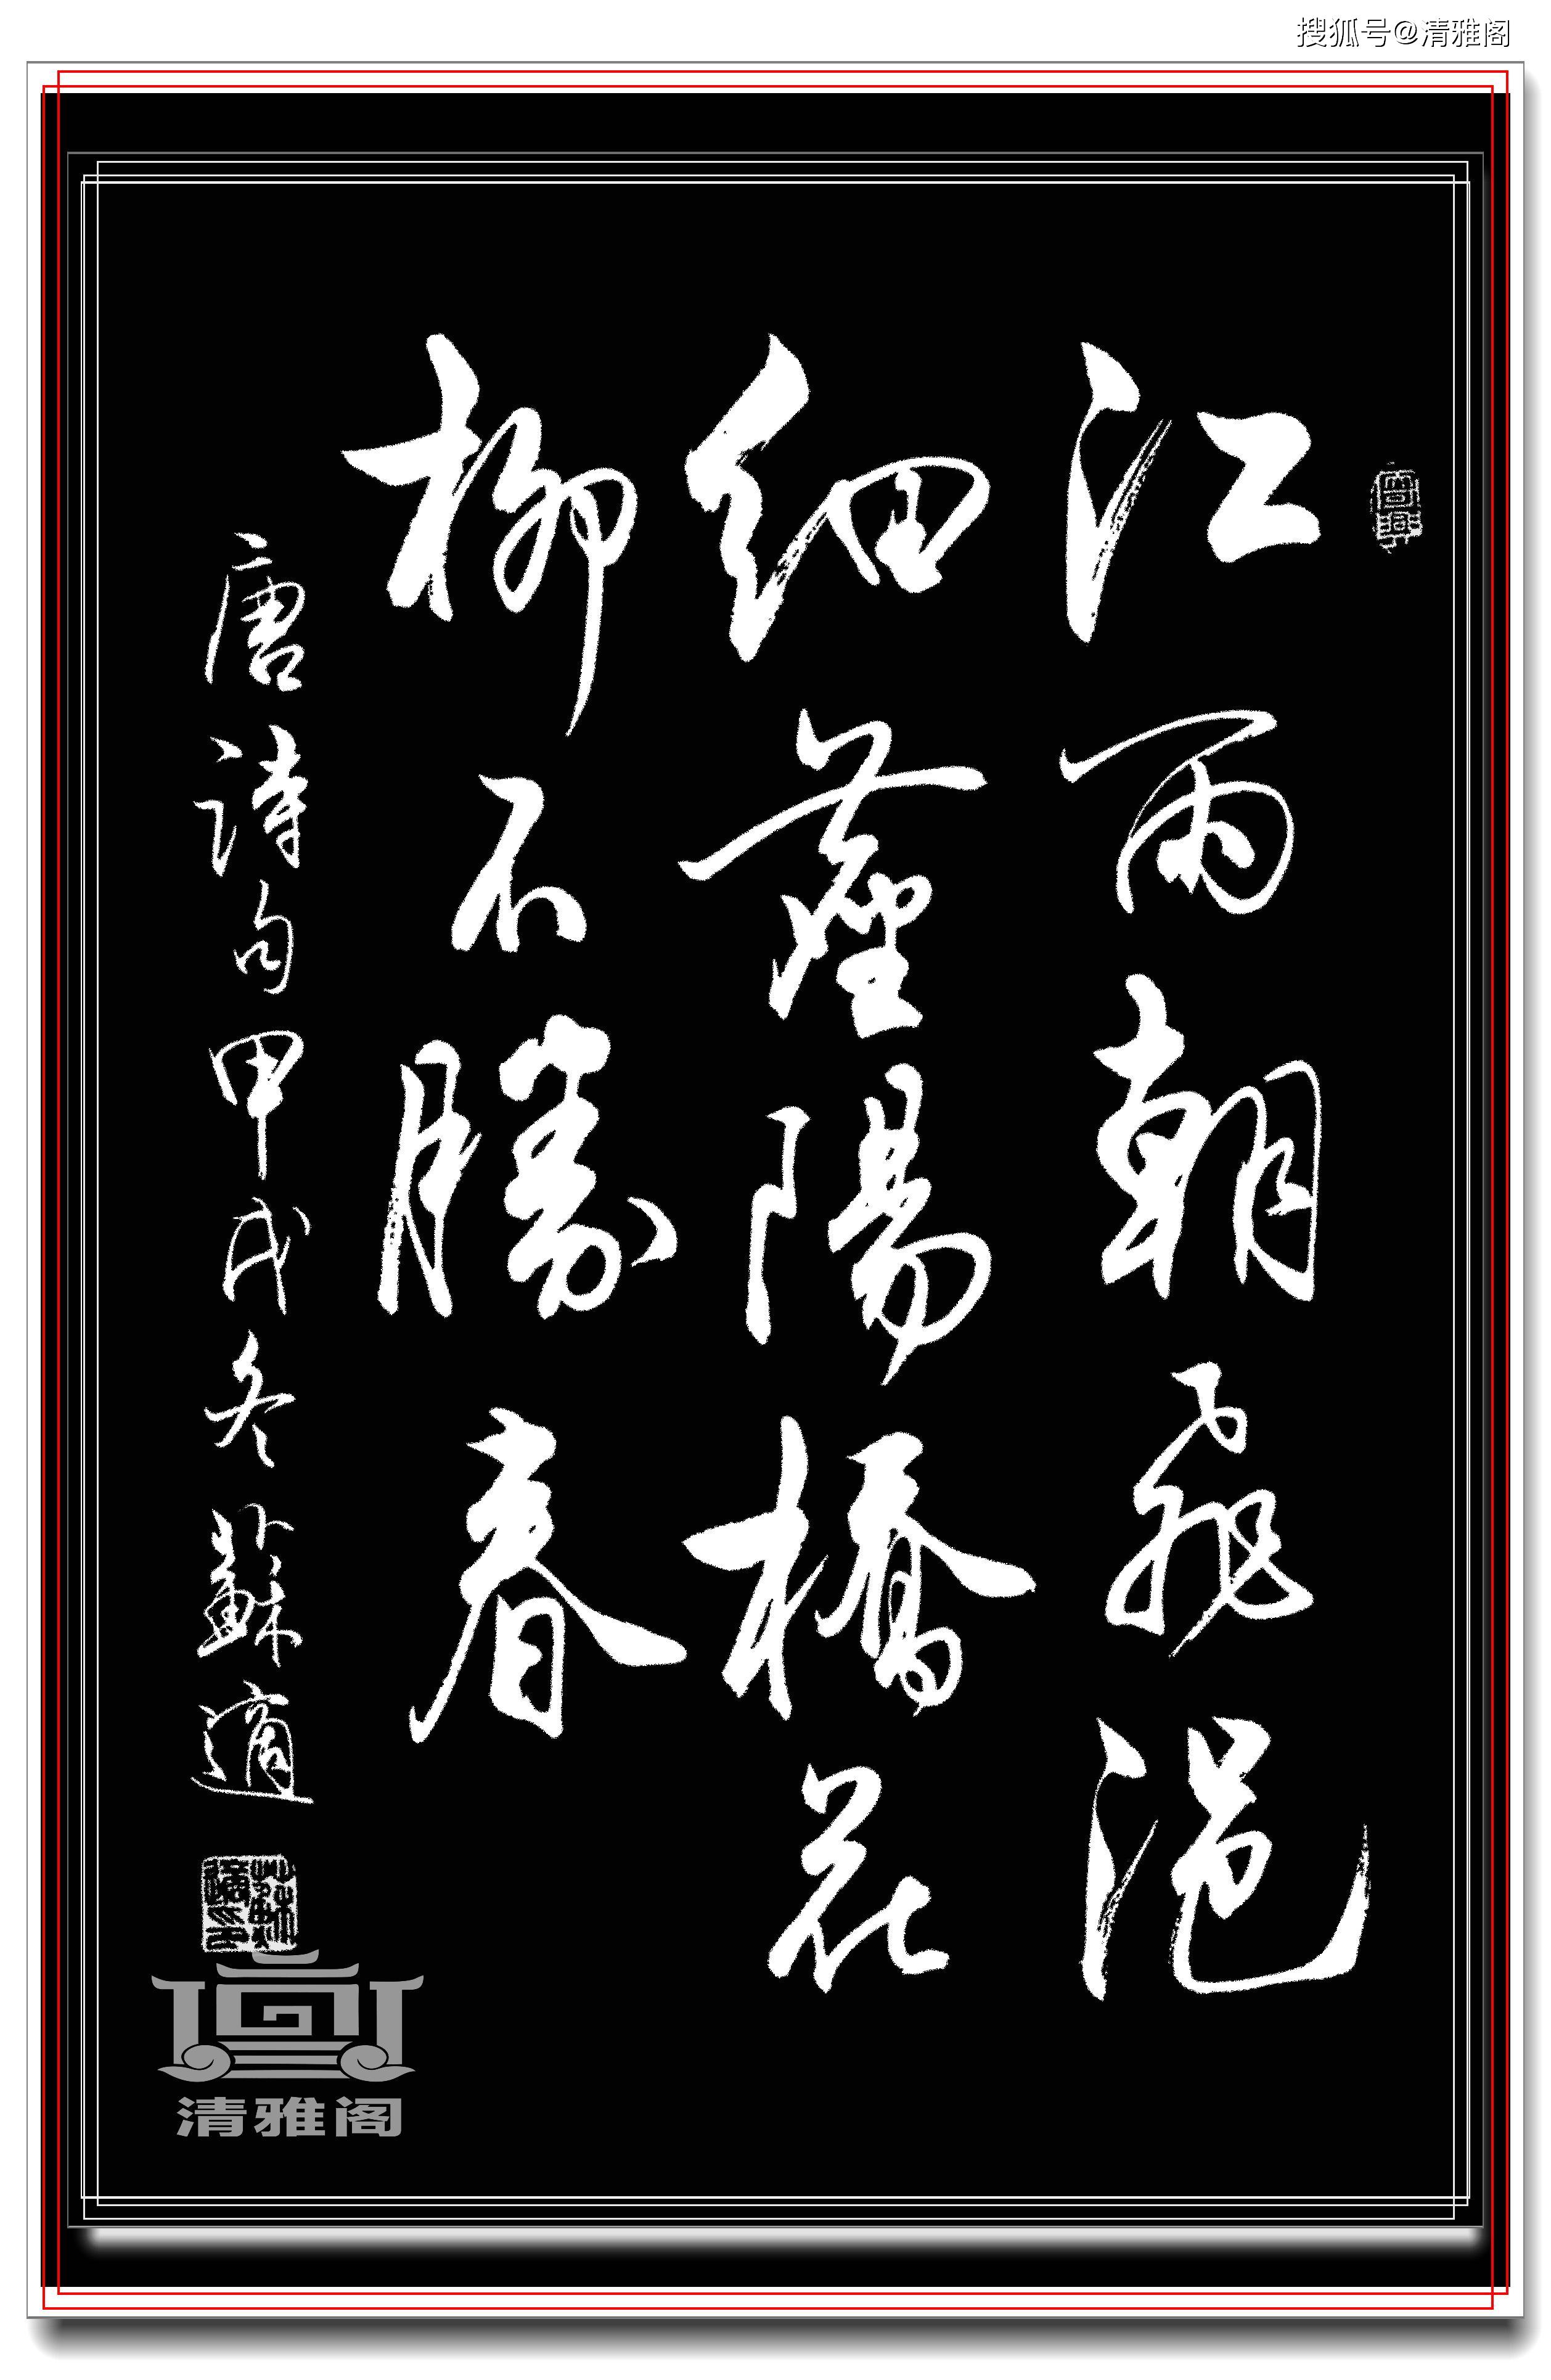 搜狐号@清雅阁
江雨朝飛浥
細塵陽橋花
柳不勝春
唐詩句甲戌冬蘇適
蘇適之印
清雅阁